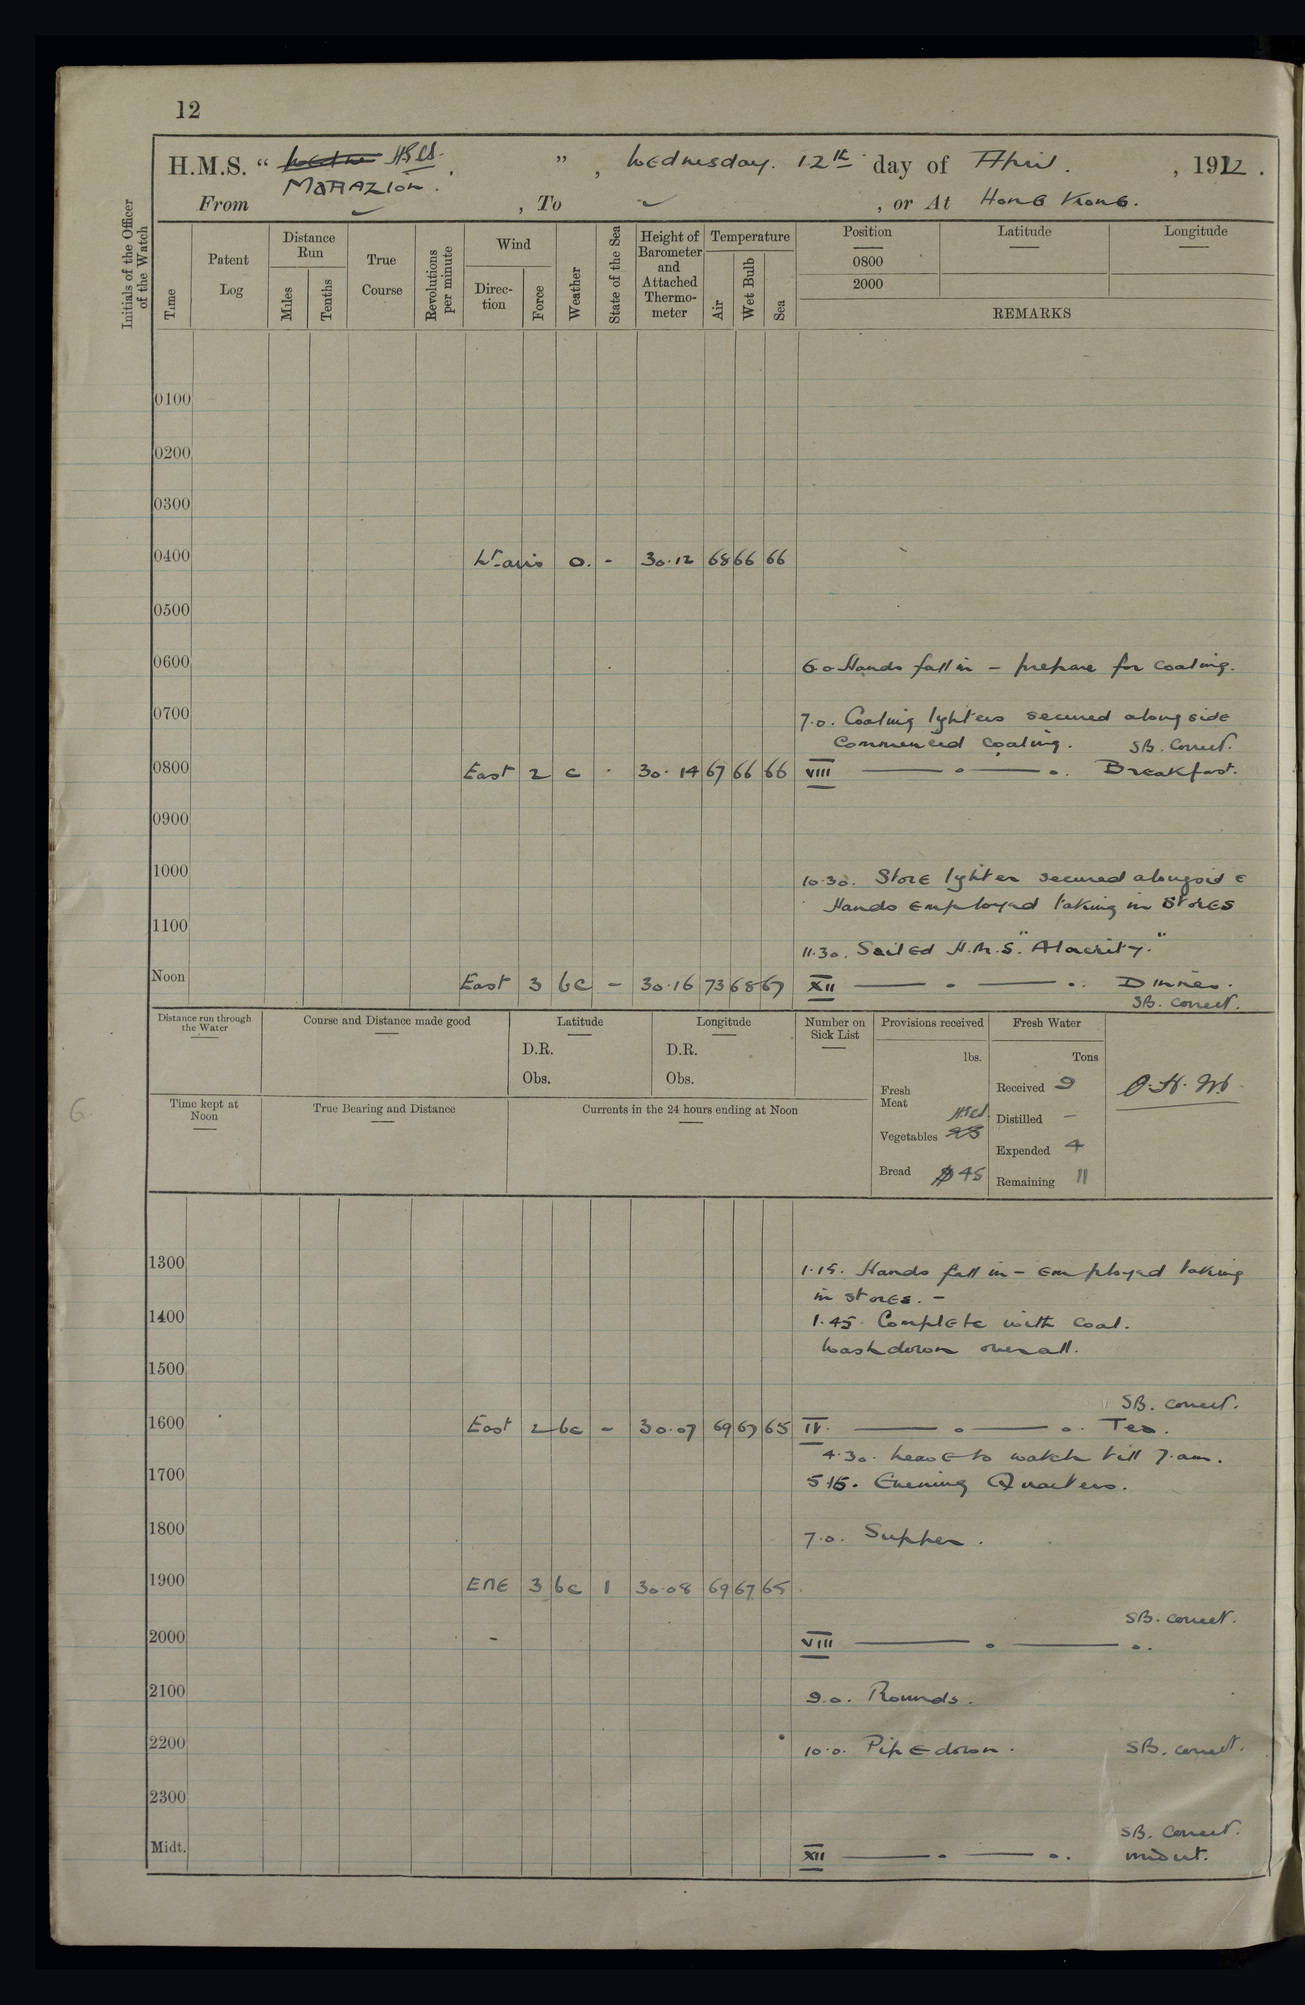 12
H.M.S. " Wedne
MARAZION. " , Wednesday. 12th day of April. , 1922.
From ✓ , To ✓ , or At Hong Kong.
Initials of the Officer of the Watch
Time
Patent Log
Distance Run
Miles
Tenths
True Course
Revolutions per minute
Wind
Direc-tion
Force
Weather
State of the Sea
Height of Barometer and Attached Thermo-meter
Temperature
Air
Wet Bulb
Sea
Position
0800
2000
Latitude
Longitude
REMARKS
0100
0200
0300
0400 Lt airs o. - 30.12 68 66 66
0500
0600 6.0 Hands fall in - prepare for coaling.
0700 7.0. Coaling lighters secured alongside
Commenced coaling. SB. Correct.
0800 East 2 c - 30.14 67 66 66 VIII Breakfast.
0900
1000 10.30. Store lighter secured alongside
Hands employed taking in stores
1100
11.30. Sailed H.M.S. "Alacrity."
Noon East 3 bc - 30.16 73 68 67 XII Dinner.
SB. correct.
Distance run through the Water
Course and Distance made good
Latitude
D.R.
Obs.
Longitude
D.R.
Obs.
Number on Sick List
Provisions received
lbs.
Fresh Meat
Vegetables
Bread 45
Fresh Water
Tons
Received 9
Distilled -
Expended 4
Remaining 11
Time kept at Noon
True Bearing and Distance
Currents in the 24 hours ending at Noon
6
1300 1.15. Hands fall in - employed taking
in stores. -
1400 1.45. Complete with coal.
Wash down overall.
1500
SB. correct.
1600 East 2 bc - 30.07 69 67 65 IV. Tea.
4.30. Leave to watch till 7.am.
1700 5.15. Evening Quarters.
1800 7.0. Supper.
1900 ENE 3 bc 1 30.08 69 67 65
SB. correct.
2000 - VIII
2100 9.0. Rounds.
2200 10.0. Pipe down. SB. correct.
2300
SB. Correct.
Midt. XII Midnt.